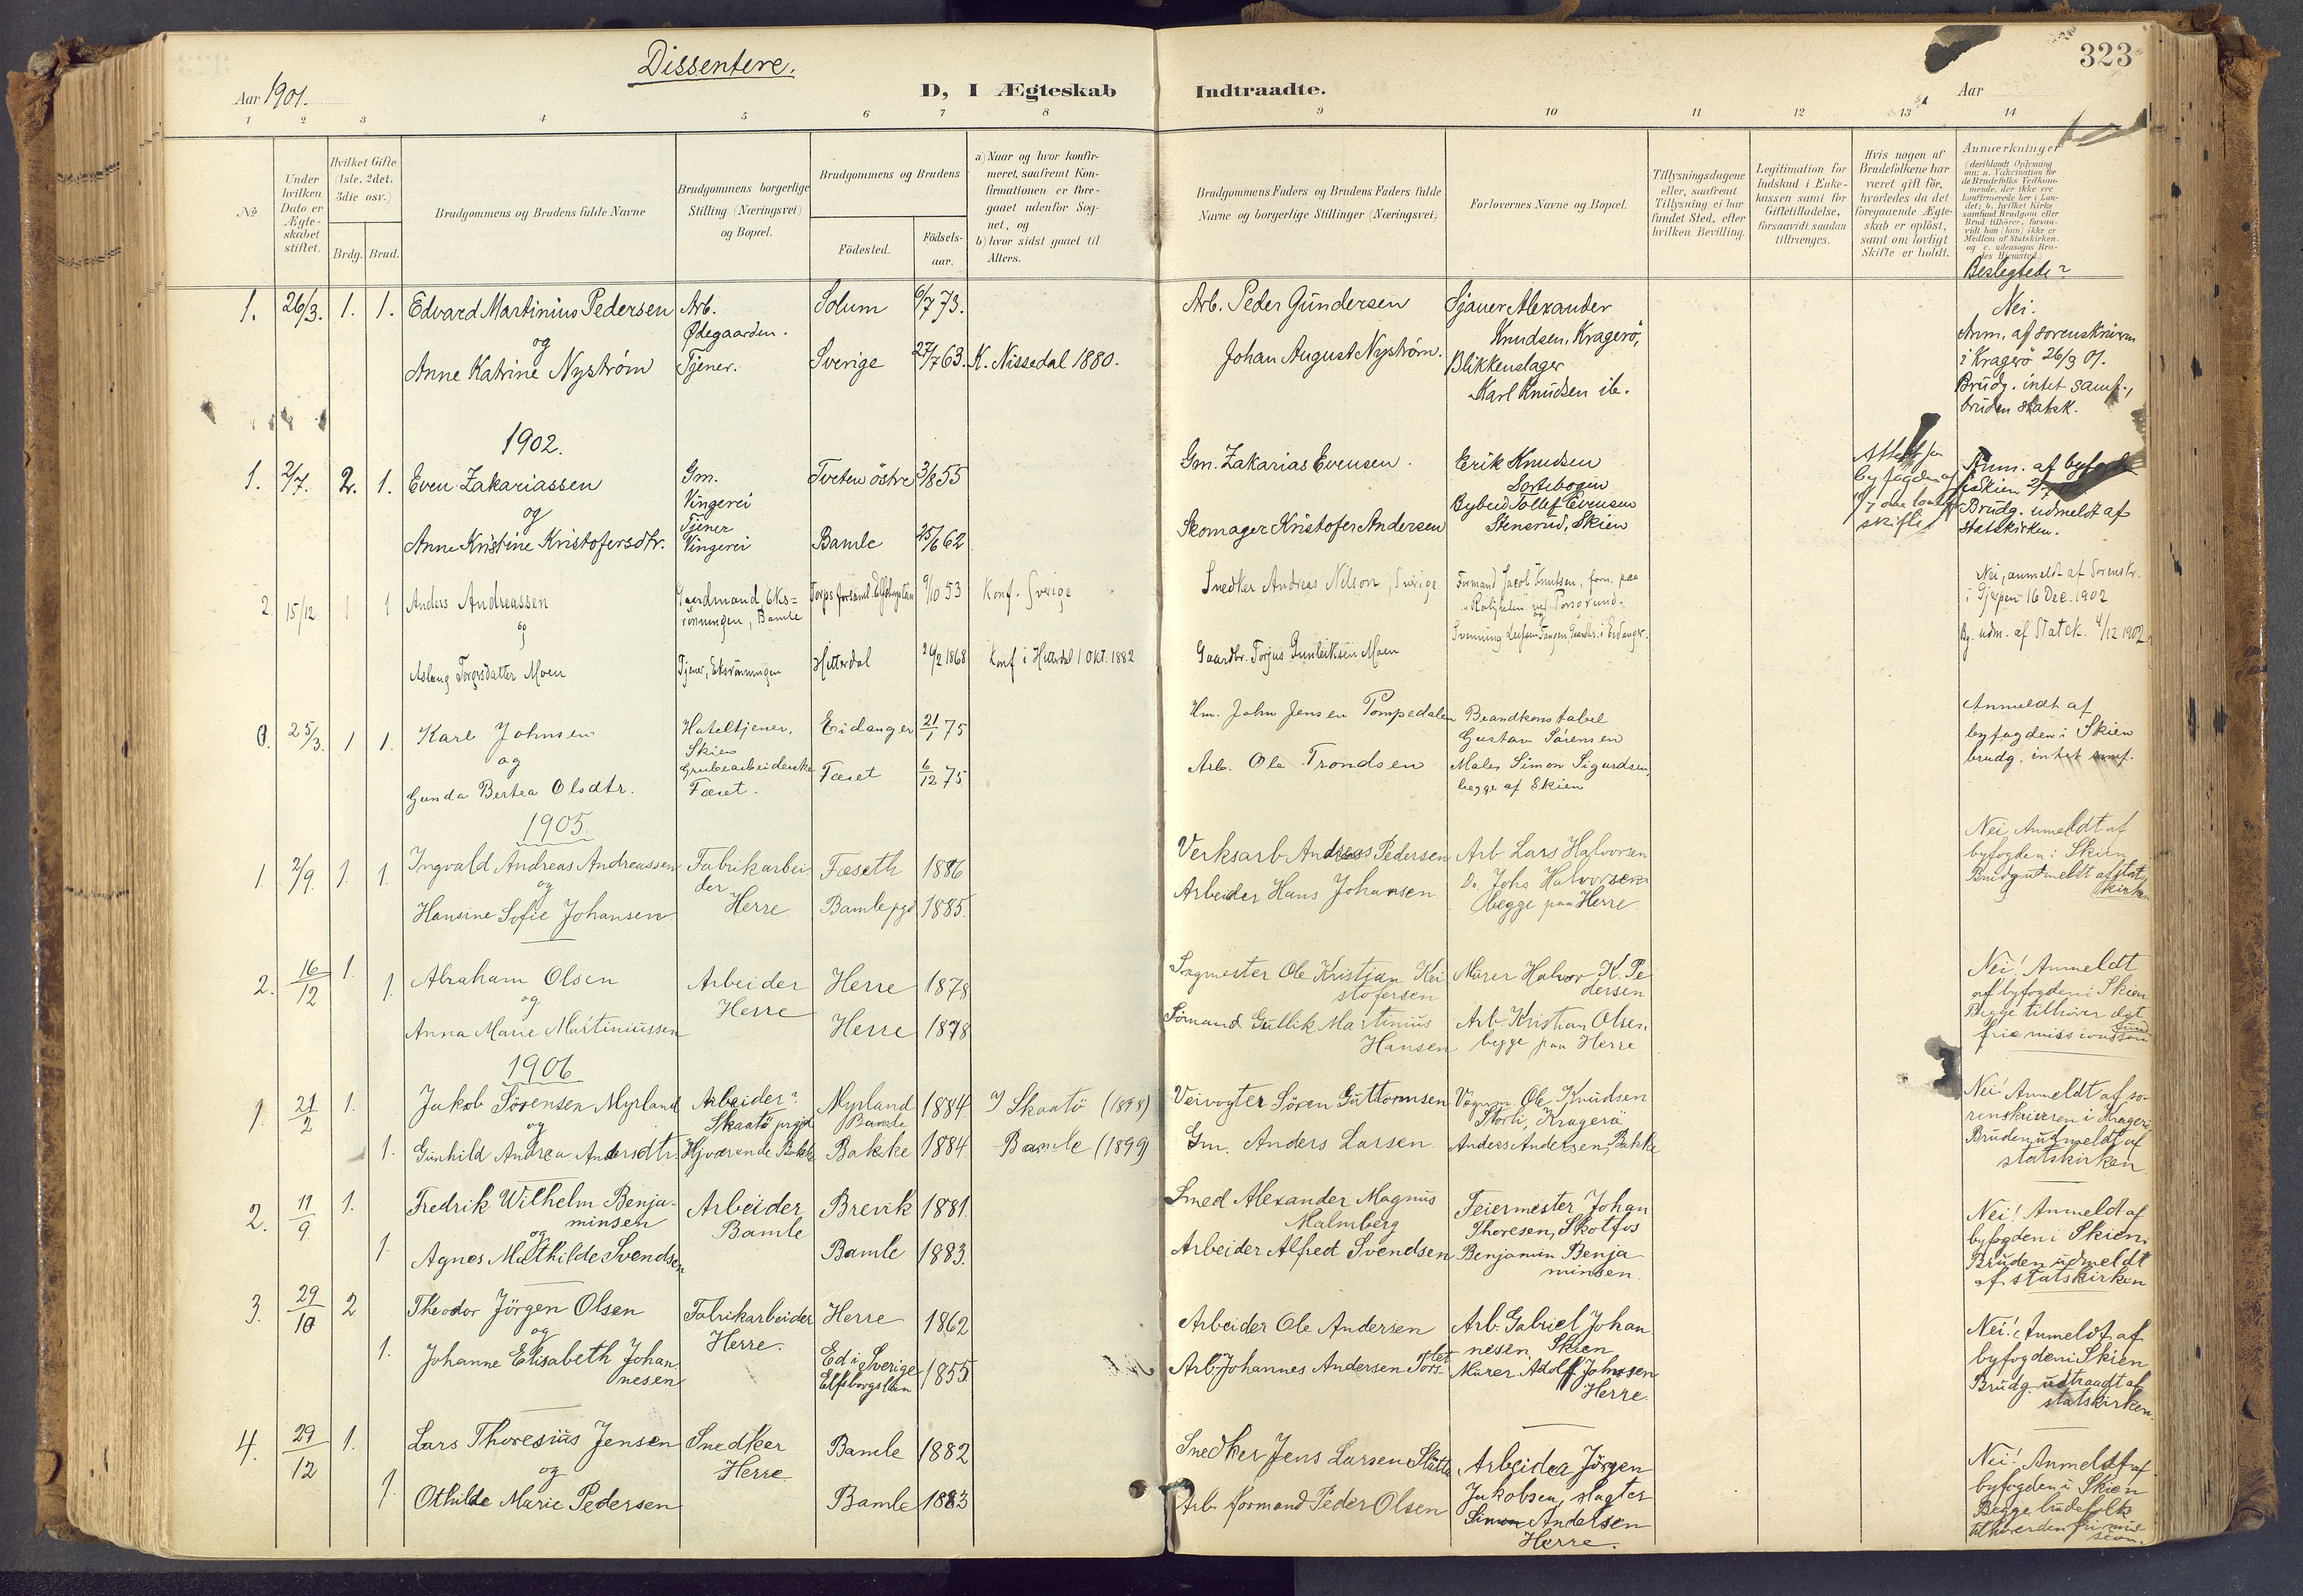 Dissentere.
323
Aar 1901.
D, I Ægteskab
Indtraadte.
Aar
1 2 3 4 5 6 7 8 9 10 11 12 13 14
No
Under hvilken Dato er Ægte-skabet stiftet.
Hvilket Gifte (1ste, 2det, 3die osv.)
Brdg. Brud.
Brudgommens og Brudens fulde Navne
Brudgommens borgerlige Stilling (Næringsvei) og Bopæl.
Brudgommens og Brudens
Födested.
Födsels-aar.
a) Naar og hvor konfir-meret, saafremt Kon-firmationen er fore-gaaet udenfor Sog-net, og
b) hvor sidst gaaet til Alters.
Brudgommens Faders og Brudens Faders fulde Navne og borgerlige Stillinger (Næringsvei)
Forlovernes Navne og Bopæl.
Tillysningsdagene eller, saafremt Tillysning ei har fundet Sted, efter hvilken Bevilling.
Legitimation for Indskud i Enke-kassen samt for Giftetilladelse, forsaavidt saadan tiltrænges.
Hvis nogen af Brudefolkene har været gift för, hvorledes da det foregaaende Ægte-skab er oplöst, samt om lovligt Skifte er holdt.
Anmerkninger
Beslegtede?
1. 26/3. 1. 1. Edvard Martinius Pedersen Arb. Ødegaarden. Solum 6/7 73. Arb. Peder Gundersen Sjauer Alexander Knudsen, Kragerö, Nei.
og
Anne Katrine Nyström Tjener. Sverige 27/7 63. K. Nissedal 1880. Johan August Nyström. Blikkenslager Karl Knudsen ib. Anm. af sorenskriveren i Kragerö 26/3 01. Brudg. intet samf., bruden statsk.
1902.
1. 2/7. 2. 1. Even Zakariassen Gm. Vingerei Tveten östre 3/8 55 Gm. Zakarias Evensen. Erik Knudsen Anm. af byfogde
og
Anne Kristine Kristofersdtr. Tjener Vingerei Bamle 25/6 62 Skomager Kristofer Andersen Bybud Tollef Evensen Stensrud, Skien skifte Brudg. udmeldt af statskirken.
2 15/12 1 1 Anders Andreassen Gaardmand, Eks-rönningen, Bamle 9/10 53 Konf. Sverige Snedker Andreas Nilson, Sverige Formand Jacob Knutsen, Nei, anmeldt af Sorenskr. i Gjerpen 16 Dec. 1902
og
Aslaug Torgersdatter Moen Tjener, Eksrönningen Hitterdal 24/2 1868 Konf i Hitterdal 1 Okt. 1882 Gaardbr. Torjus Gunleiksen Moen Bg. udm. af Statsk. 4/12 1902
0. 25/3. 1 1. Karl Johnsen Hoteltjener, Skien Eidanger 21/1 75 Hm. John Jensen Pompedalen Brandkonstabel Gustav Sörensen Anmeldt af byfogden i Skien
og
Gunda Bertea Olsdtr. Grubearbeiderske Fæset. Fæset 6/12 75 Arb. Ole Trondsen Maler Simon Sigurdsen, begge af Skien brudg. intet samf.
1905.
1. 2/9. 1. 1. Ingvald Andreas Andreassen Fabrikarbeider Herre Fæseth 1886 Verksarb. Andreas Pedersen Arb. Lars Halvorsen Nei. Anmeldt af byfogden i Skien
og
Hansine Sofie Johansen Bamle pgd 1885. Arbeider Hans Johansen Do. Johs Halvorsen begge paa Herre. Brudg. utmeldt af statskirken
2. 16/12 1. 1. Abraham Olsen Arbeider Herre Herre 1878 Sagmester Ole Kristian Kristofersen Murer Halvor K. Pedersen Nei! Anmeldt af byfogden i Skien
og
Anna Marie Martiniussen Herre 1878 Sömand Gullik Martinius Hansen Arb. Kristian Olsen begge paa Herre Begge tilhörer det frie missionssamfund
1906
1. 21/2 1. Jakob Sörensen Myrland Arbeider Skaatö prgjd Myrland Bamle 1884 Skaatö (1898) Veivogter Sören Guttormsen Ole Knudsen Storli, Kragerö Nei! Anmeldt af sorenskriveren i Kragerö
og
1. Gunhild Andrea Andersdtr. Hjværende Bakke Bakke 1884 Bamle (1899) Gm. Anders Larsen Anders Andersen, Bakke Bruden udmeldt af statskirken.
2. 11/9. 1. Fredrik Wilhelm Benjaminsen Arbeider Bamle Brevik 1881. Smed Alexander Magnus Malmberg Feiermester Johan Thoresen, Skotfos Nei! Anmeldt af byfogden i Skien.
og
1. Agnes Mathilde Svendsen Bamle 1883. Arbeider Alfred Svendsen Benjamin Benjaminsen. Bruden udmeldt af statskirken
3. 29/10 2 Theodor Jörgen Olsen Fabrikarbeider Herre. Herre 1862 Arbeider Ole Andersen Arb. Gabriel Johannesen, Skien Nei! Anmeldt af byfogden i Skien
og
1. Johanne Elisabeth Johannesen Ed i Sverige Elfsborgslän 1855 Arb. Johannes Andersen Murer Adolf Johnsen Herre. Brudg. udtraadt af statskirken.
4. 29/12 1. Lars Thoresius Jensen Snedker Herre Bamle 1882 Snedker Jens Larsen Arbeider Jörgen Jakobsen, slagter Nei! Anmeldt af byfogden i Skien
og
1. Othilde Marie Pedersen Bamle 1883 Arb. formand Peder Olsen Simon Andersen Herre. Begge brudefolk tilhører den fri mission.